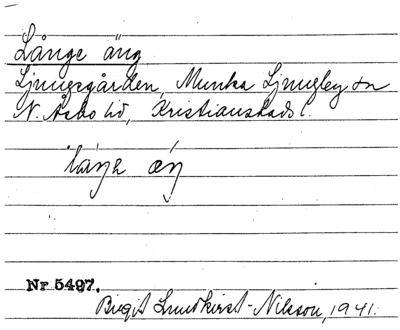 Långe äng
Ljungsgården, Munka Ljungby sn
N. Åsbo hd, Kristianstads l.
äŋ
Nr 5497.
Birgit Lundkvist-Nilsson, 1941.